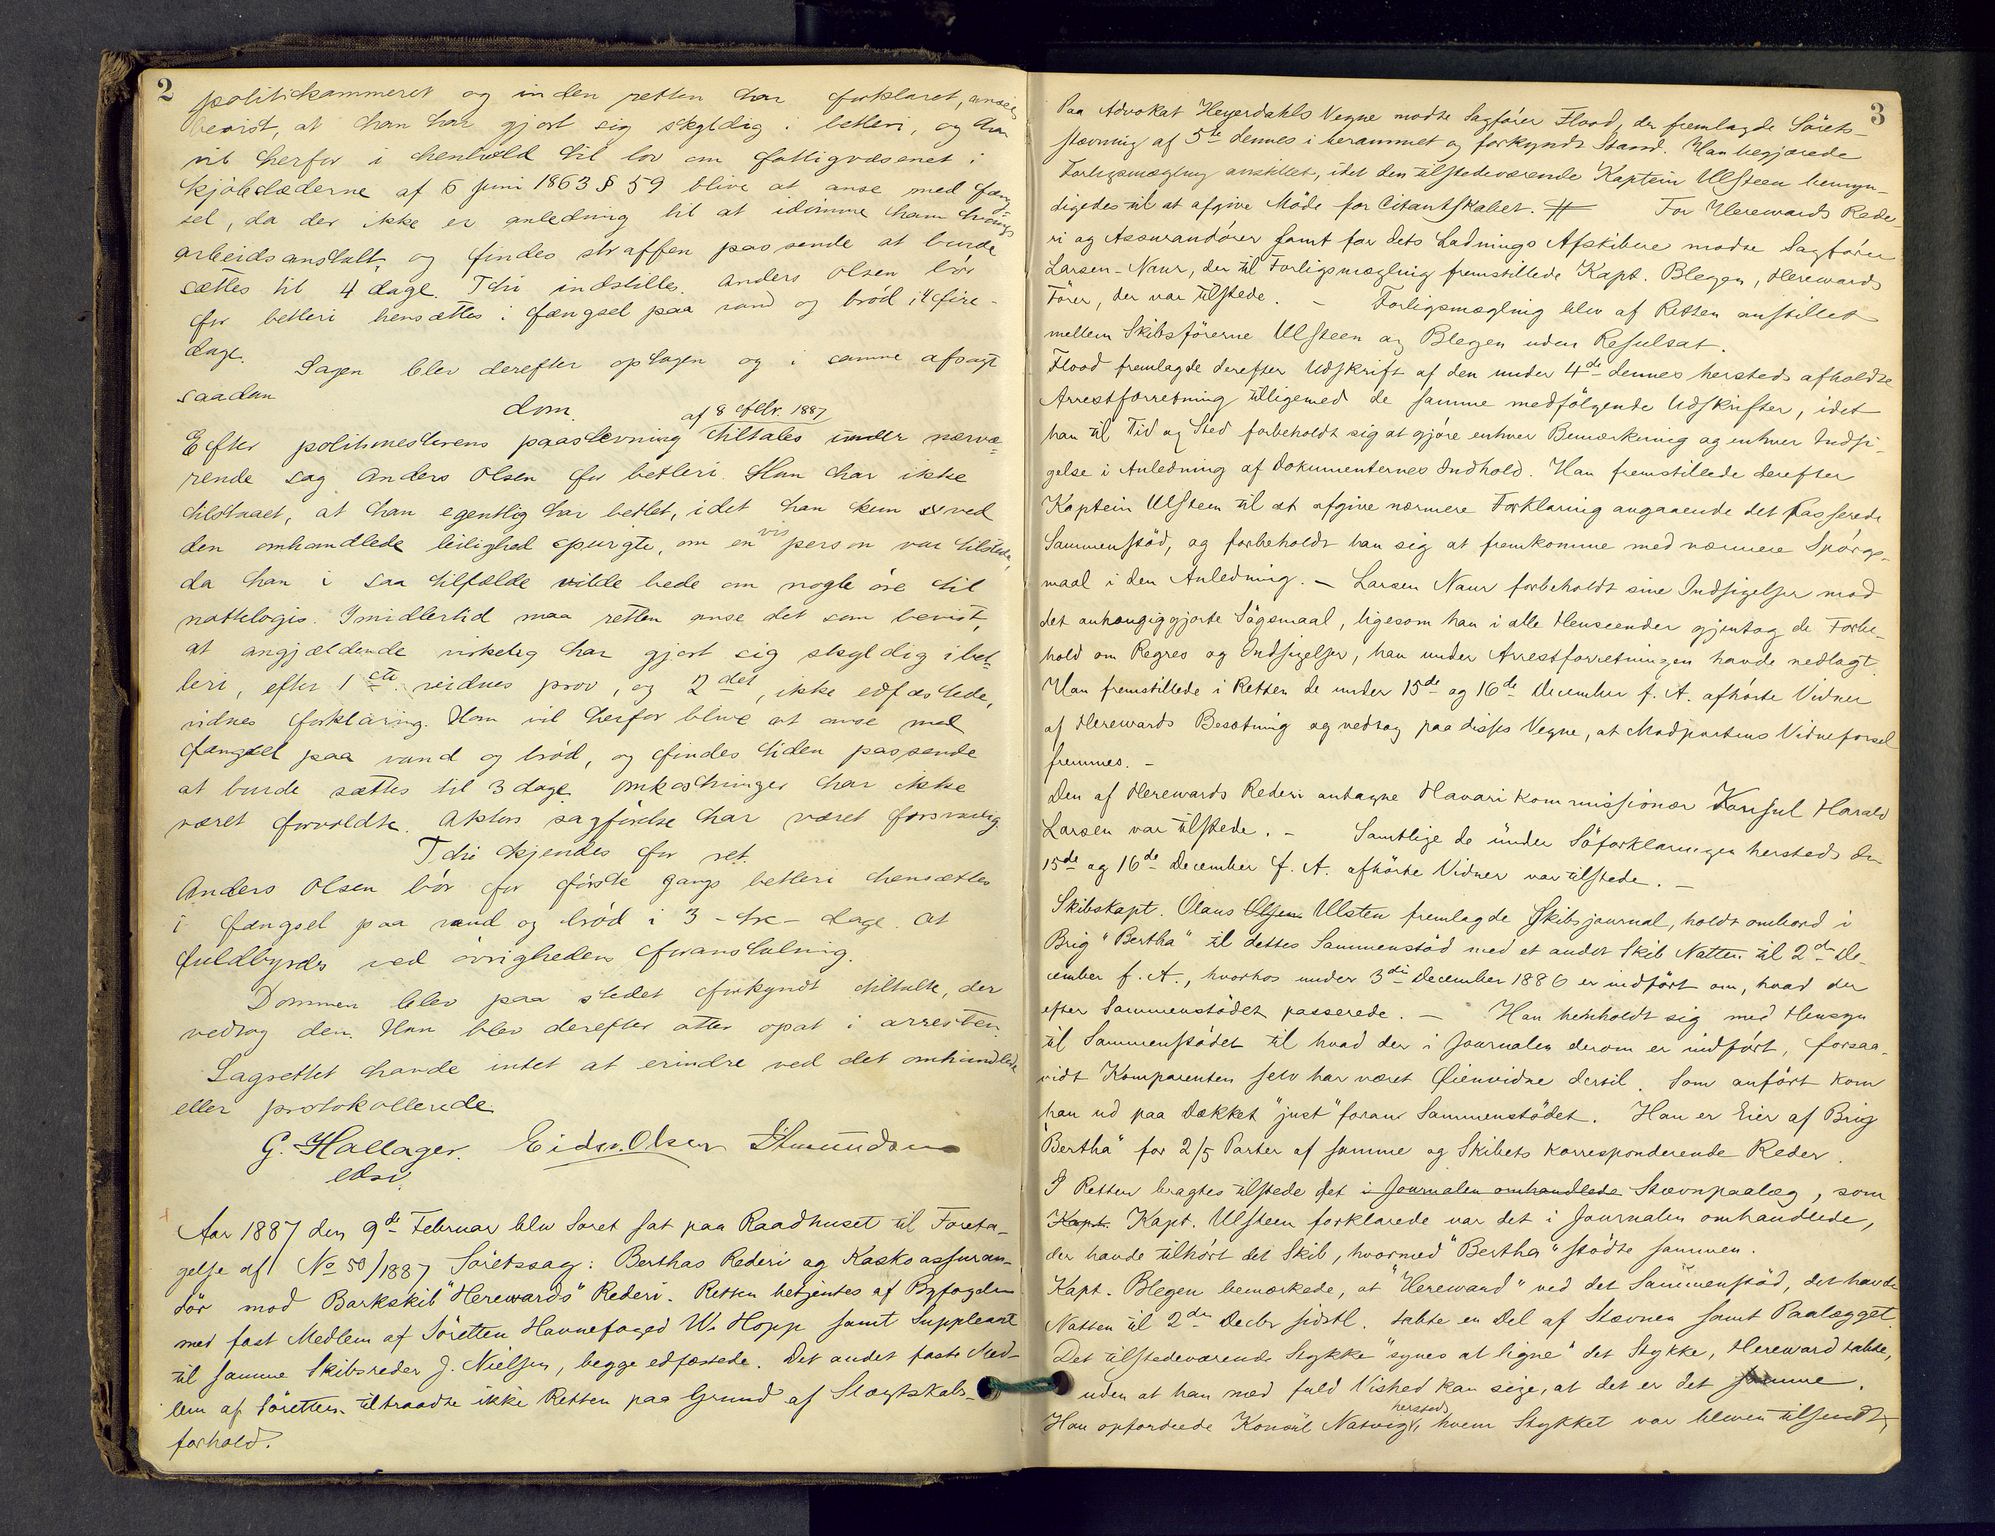 2
politikammeret og inden retten har forklaret, ansees
bevist, at han har gjort sig skyldig i betleri, og han
vil herfor i henhold til lov om fattigvæsenet i
kjøbstæderne af 6 juni 1863 § 59 blive at anse med fæng
sel, da der ikke er anledning til at idømme ham tvangs
arbeidsanstalt, og findes straffen passende at burde
sættes til 4 dage. Thi indstilles. Anders Olsen bør
for betleri hensættes i fængsel paa vand og brød i 4 fire -
dage.
Sagen blev derefter optagen og i samme afsagt
saadan
dom.
Efter politimesterens paastevning af 8 febr. 1887 tiltales under nærvæ-
rende sag Anders Olsen for betleri. Han har ikke
tilstaaet, at han egentlig har betlet, idet han kun ved
den omhandlede leilighed spurgte, om en vis person var tilstede,
da han i saa tilfælde vilde bede om nogle øre til
nattelogis. Imidlertid maa retten anse det som bevist,
at angjældende virkelig har gjort sig skyldig i bet-
leri, efter 1ste vidnes prov, og 2det, ikke edfæstede,
vidnes forklaring. Han vil herfor blive at anse med
fængsel paa vand og brød, og findes tiden passende
at burde sættes til 3 dage. Omkostninger har ikke
været forvoldte. Aktors sagførelse har været forsvarlig.
Thi kjendes for ret.
Anders Olsen bør for første gangs betleri hensættes
i fængsel paa vand og brød i 3 - tre - dage. At
fuldbyrdes ved øvrighedens foranstaltning.
Dommen blev paa stedet forkyndt tiltalte, der
vedtog den. Han blev derefter atter opsat i arresten.
Lagrettet havde intet at erindre ved det omhandlede
eller protokollerede
G. Hallager. Eidsv. Olsen
Aar 1887 den 9de Februar blev Søret sat paa Raadhuset til Foreta-
gelse af No 50/1887 Søretssag: Berthas Rederi og Kaskoassuran-
dør mod Barkskib "Herewards" Rederi. Retten betjentes af Byfogden
med fast Medlem af Søretten Havnefoged W. Hopp samt Suppleant
til samme Skibsreder J. Nielsen, begge edfæstede. Det andet faste Med-
lem af Søretten tiltraadte ikke Retten paa Grund af Slægtskabs
forhold.
3
Paa Advokat Heyerdahls Vegne mødte Sagfører Flood, der fremlagde Sørets-
stævning af 5te dennes i berammet og forkyndt Stand. Han begjærede
Forligsmægling anstillet, idet den tilstedeværende Kaptein Ulsteen bemyn-
digedes til at afgive Møde for Citantskabet. # For Herewards Rede-
ri og Assurandører samt for dets Ladnings Afskibere mødte Sagfører
Larsen-Naur, der til Forligsmægling fremstillede Kapt. Blegen, Herewards
Fører, der var tilstede. - Forligsmægling blev af Retten anstillet
mellem Skibsførerne Ulsteen og Blegen uden Resultat.
Flood fremlagde derefter Udskrift af den under 4de dennes hersteds afholdte
Arrestforretning tilligemed de samme medfølgende Udskrifter, idet
han til Tid og Sted forbeholdt sig at gjøre enhver Bemærkning og enhver Indsi-
gelse i Anledning af Dokumenternes Indhold. Han fremstillede derefter
Kaptein Ulsteen til at afgive nærmere Forklaring angaaende det passerede
Sammenstød, og forbeholdt han sig at fremkomme med nærmere Spørgs-
maal i den Anledning. - Larsen Naur forbeholdt sine Indsigelser mod
det anhængiggjorte Søgsmaal, ligesom han i alle Henseender gjentog de Forbe-
hold om Regres og Indsigelser, han under Arrestforretningen havde nedlagt.
Han fremstillede i Retten de under 15de og 16de December f. A. afhørte Vidner
af Herewards Besætning og vedtog paa disses Vegne, at Modpartens Vidneførsel
fremmes. -
Den af Herewards Rederi antagne Havarikommissionær Konsul Harald
Larsen var tilstede. - Samtlige de under Søforklaringen hersteds den
15de og 16de December f. A. afhørte Vidner var tilstede. -
Skibskapt. Olaus Olsen Ulsten fremlagde Skibsjournal, holdt ombord i
Brig "Bertha" til dettes Sammenstød med et andet Skib Natten til 2de De-
cember f. A., hvorhos under 3die December 1886 er indført om, hvad der
efter Sammenstødet passerede. - Han henholdt sig med Hensyn
til Sammenstødet til hvad der i Journalen derom er indført, forsaa-
vidt Komparenten selv har været Øienvidne dertil. Som anført kom
han ud paa Dækket "just" foran Sammenstødet. Han er Eier af Brig
"Bertha" for 2/5 Parter af samme og Skibets korresponderende Reder.
I Retten bragtes tilstede det i Journalen omhandlede Stævnpaalæg, som
Kapt. Kapt. Ulsteen forklarede var det i Journalen omhandlede,
der havde tilhørt det Skib, hvormed "Bertha" stødte sammen.
Kapt. Blegen bemærkede, at "Hereward" ved det Sammenstød, det havde
Natten til 2den Decbr sidstl. tabte en Del af Stævnen samt Paalægget.
Det tilstedeværende Stykke "synes at ligne" det Stykke, Hereward tabte,
uden at han med fuld Vished kan sige, at det er det samme.
Han opfordrede Konsul Natvig hersteds, hvem Stykket var bleven tilsendt,